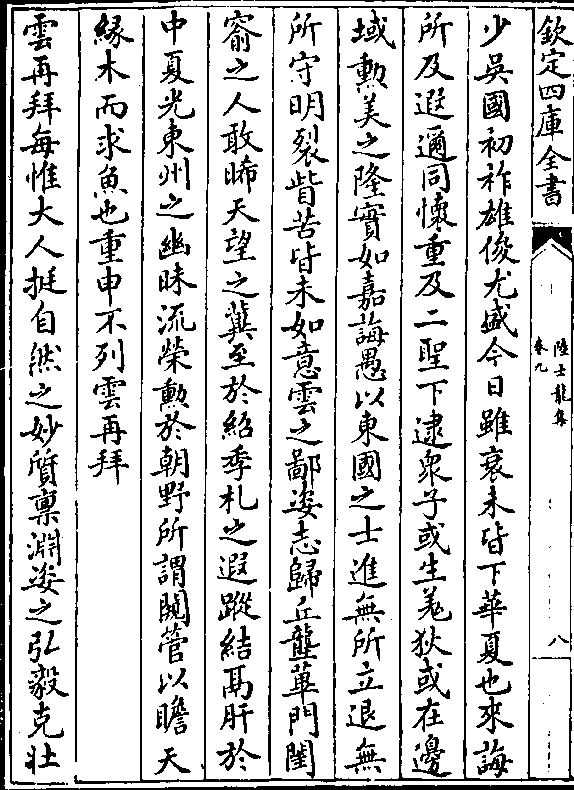 欽定四庫全書
陸士龍集
卷九
八
少吳國初祚雄俊尤盛今日雖衰未皆下華夏也來誨
所及遐邇同懷重及二聖下逮衆子或生羗狄或在邊
域勲美之隆實如嘉誨愚以東國之士進無所立退無
所守明裂眥苦皆未如意雲之鄙姿志歸丘壟蓽門閨
窬之人敢晞天望之冀至於紹季札之遐蹤結鬲肝於
中夏光東州之幽昧流榮勲於朝野所謂闚管以瞻天
緣木而求魚也重申不列雲再拜
雲再拜每惟大人挺自然之妙質稟淵姿之弘毅克壯